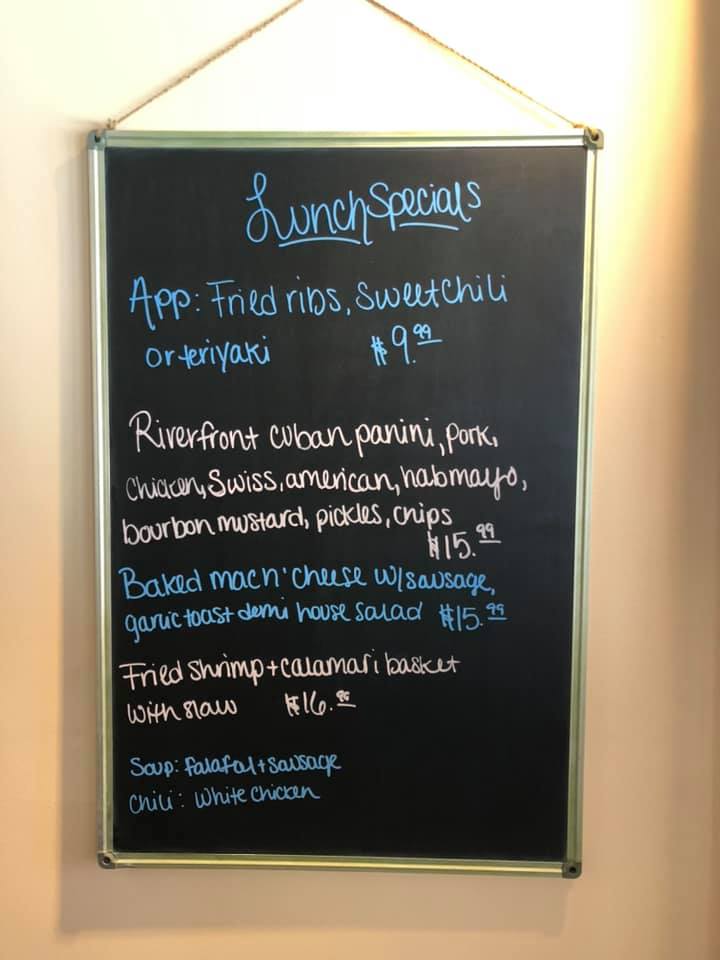 Lunch Specials
App: Fried ribs, Sweet Chili
or teriyaki $9.99
Riverfront cuban panini, Pork,
Chicken, Swiss, american, hab mayo,
bourbon mustard, pickles, chips
$15.99
Baked mac n' cheese w/ sausage,
garlic toast demi house salad $15.99
Fried Shrimp + calamari basket
with slaw $16.
Soup: falafal + sausage
Chili: White chicken